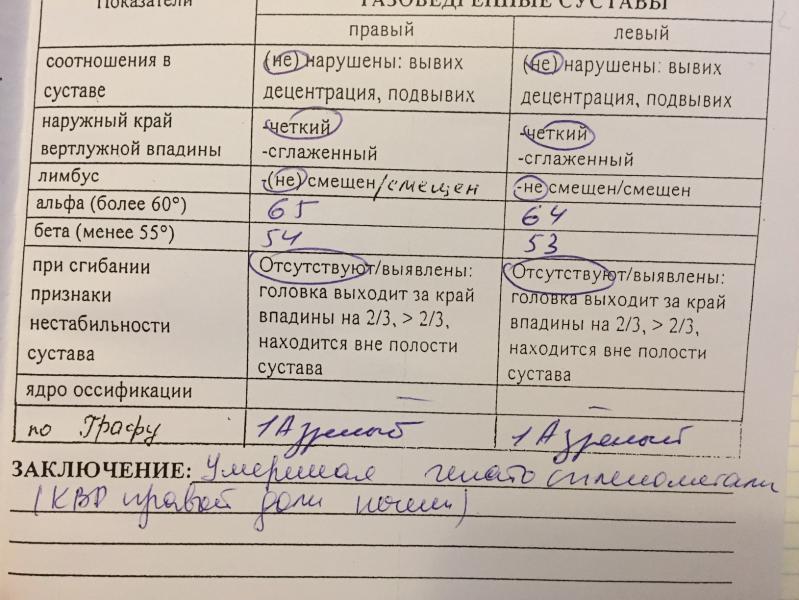 Показатели ТАЗОБЕДРЕННЫЕ СУСТАВЫ
правый левый
соотношения в (не) нарушены: вывих (не) нарушены: вывих
суставе децентрация, подвывих децентрация, подвывих
наружный край -четкий -четкий
вертлужной впадины -сглаженный -сглаженный
лимбус -(не) смещен/смещен -не смещен/смещен
альфа (более 60°) 65 64
бета (менее 55°) 54 53
при сгибании Отсутствуют/выявлены: Отсутствуют/выявлены:
признаки головка выходит за край головка выходит за край
нестабильности впадины на 2/3, > 2/3, впадины на 2/3, > 2/3,
сустава находится вне полости находится вне полости
сустава сустава
ядро оссификации — —
по Графу 1А зрелый 1А зрелый
ЗАКЛЮЧЕНИЕ: Умеренная гепатоспленомегалия
(КВР правой доли печени)